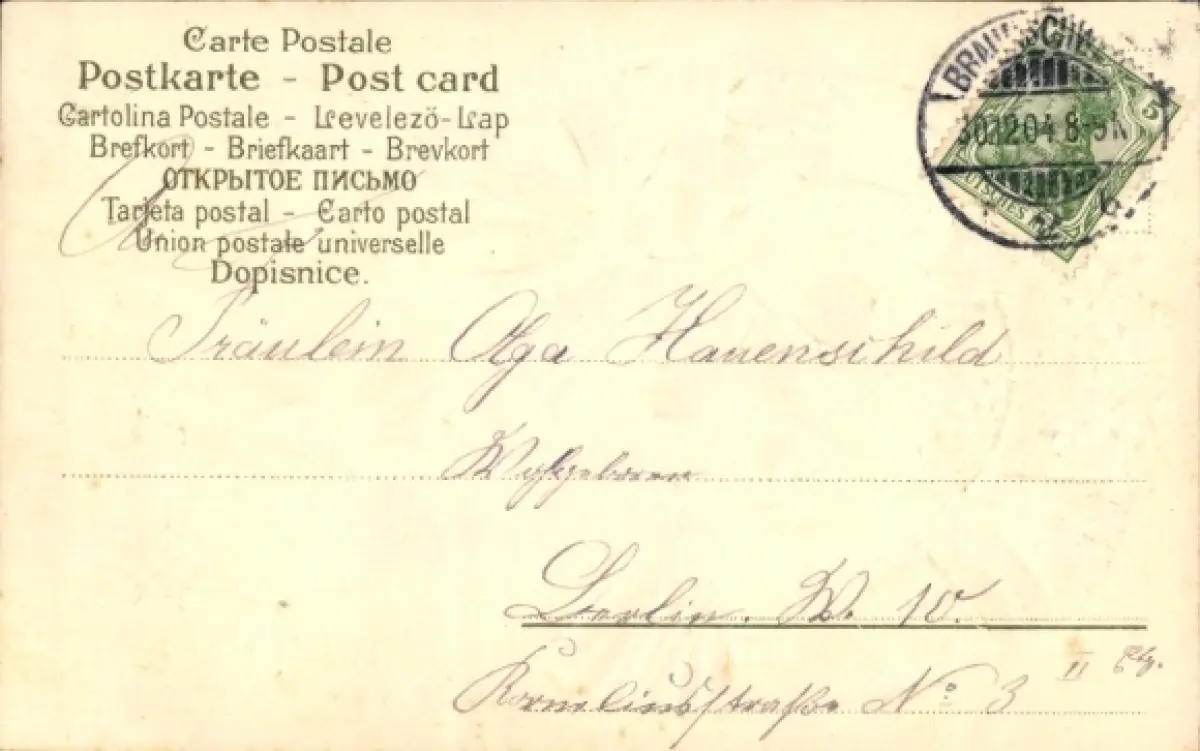 Carte Postale
Postkarte - Post card
Cartolina Postale - Levelező-Lap
Brefkort - Briefkaart - Brevkort
ОТКРЫТОЕ ПИСЬМО
Tarjeta postal - Carto postal
Union postale universelle
Dopisnice.
BRAUNSCHW
30.12.04 8-9N
2
5
Fräulein Olga Hauenschild
Wohlgeboren
Berlin. W. 10.
Korneliusstraße No 3 II